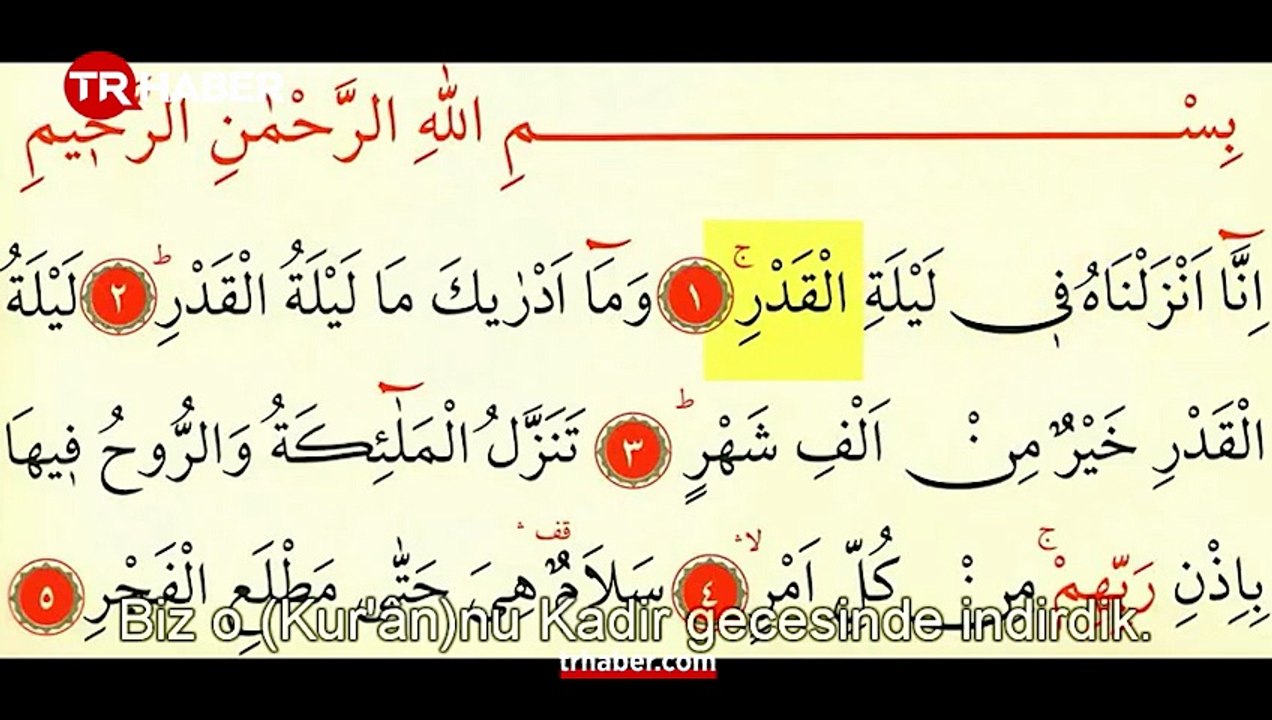 TR HABER
بِسْمِ اللّٰهِ الرَّحْمٰنِ الرَّحٖيمِ
اِنَّٓا اَنْزَلْنَاهُ فٖى لَيْلَةِ الْقَدْرِۚ ﴿١﴾ وَمَٓا اَدْرٰيكَ مَا لَيْلَةُ الْقَدْرِؕ ﴿٢﴾ لَيْلَةُ
الْقَدْرِ خَيْرٌ مِنْ اَلْفِ شَهْرٍؕ ﴿٣﴾ تَنَزَّلُ الْمَلٰٓئِكَةُ وَالرُّوحُ فٖيهَا
بِاِذْنِ رَبِّهِمْۚ مِنْ كُلِّ اَمْرٍۙ ﴿٤﴾ سَلَامٌ قف هِىَ حَتّٰى مَطْلَعِ الْفَجْرِ ﴿٥﴾
Biz o (Kur'ân)nu Kadir gecesinde indirdik.
trhaber.com